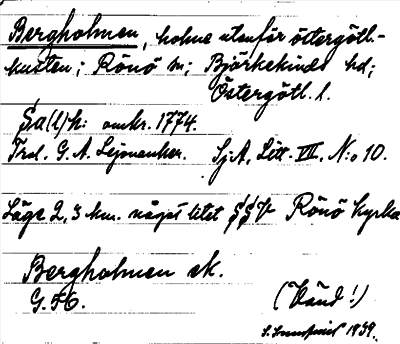 Bergholmen, holme utanför östergötl.-
kusten; Rönö sn; Björkekinds hd;
Östergötl. l.
Sa(l)k: omkr. 1774.
Trol. G. A. Lejonanker. Sj.A. Litt. VII. N:o 10.
Läge 2,3 km. något litet SSV Rönö kyrka
Bergholmen ek.
G.
(Vänd!)
1939.